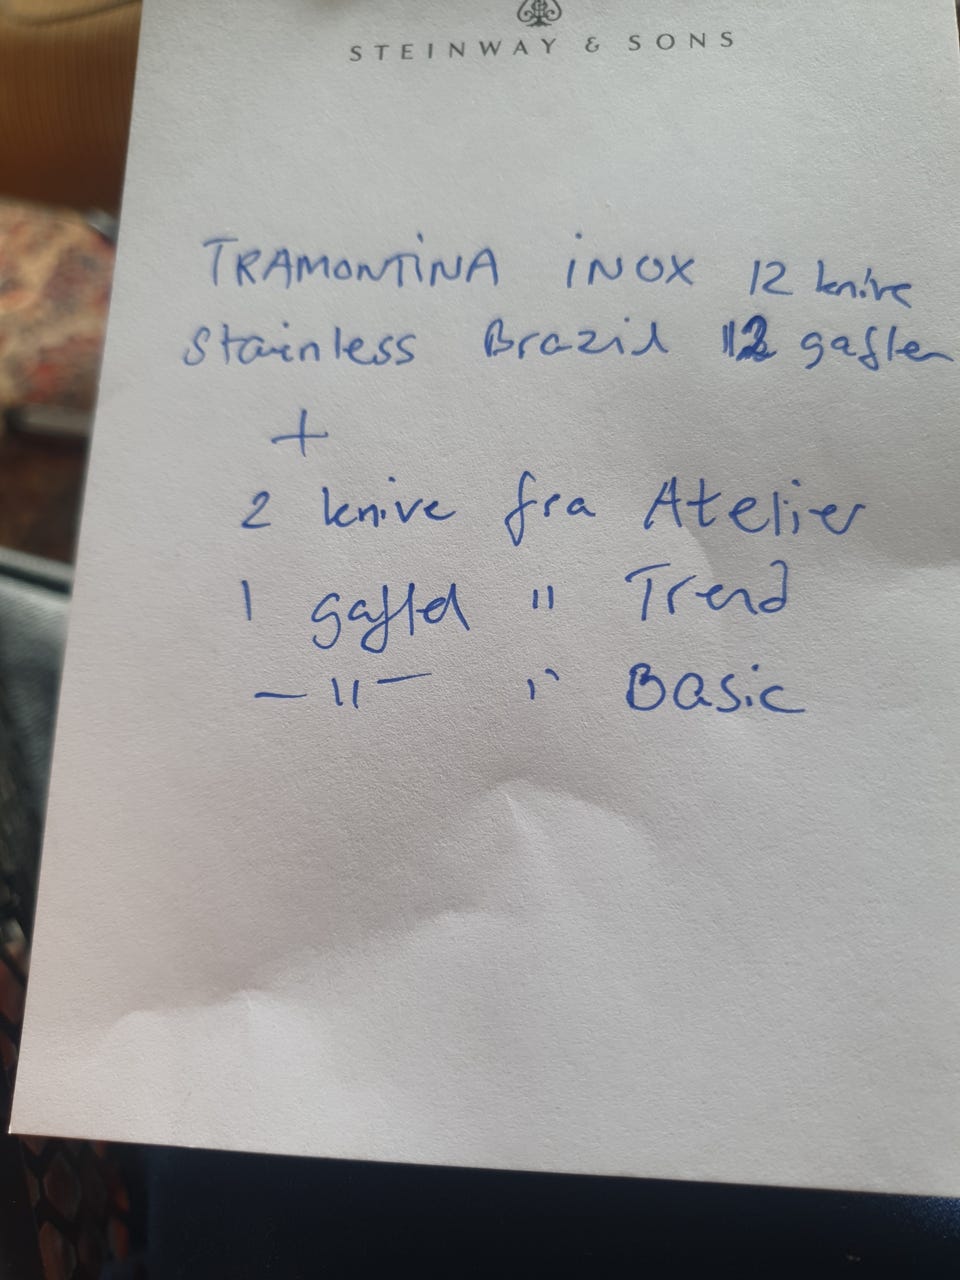 STEINWAY & SONS
TRAMONTINA INOX 12 knive
Stainless Brazil 12 gafler
+
2 knive fra Atelier
1 gaffel " Trend
— " — " Basic